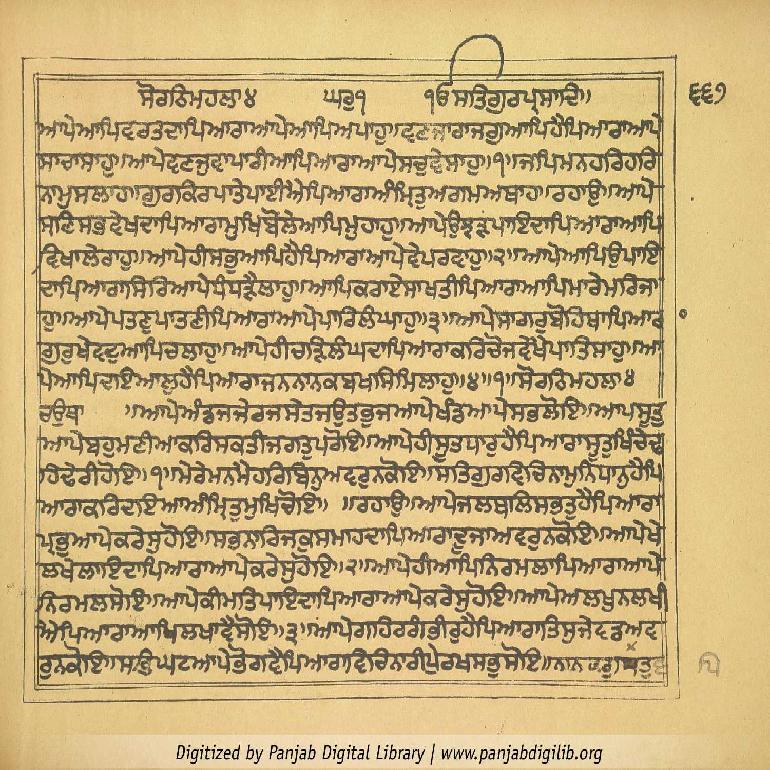 ਸੋਰਠਿਮਹਲਾ੪ ਘਰੁ੧ ੴਸਤਿਗੁਰਪ੍ਰਸਾਦਿ॥ ੬੬੭
ਆਪੇਆਪਿਵਰਤਦਾਪਿਆਰਾਆਪੇਆਪਿਅਪਾਹੁ॥ਵਣਜਾਰਾਜਗੁਆਪਿਹੈਪਿਆਰਾਆਪੇ
ਸਾਚਾਸਾਹੁ॥ਆਪੇਵਣਜੁਵਾਪਾਰੀਆਪਿਆਰਾਆਪੇਸਚੁਵੇਸਾਹੁ॥੧॥ਜਪਿਮਨਹਰਿਹਰਿ
ਨਾਮੁਸਲਾਹ॥ਗੁਰਕਿਰਪਾਤੇਪਾਈਐਪਿਆਰਾਅੰਮ੍ਰਿਤੁਅਗਮਅਥਾਹ॥ਰਹਾਉ॥ਆਪੇ
ਸੁਣਿਸਭਵੇਖਦਾਪਿਆਰਾਮੁਖਿਬੋਲੇਆਪਿਮੁਹਾਹੁ॥ਆਪੇਉਝੜਿਪਾਇਦਾਪਿਆਰਾਆਪਿ
ਵਿਖਾਲੇਰਾਹੁ॥ਆਪੇਹੀਸਭੁਆਪਿਹੈਪਿਆਰਾਆਪੇਵੇਪਰਵਾਹੁ॥੨॥ਆਪੇਆਪਿਉਪਾਇ
ਦਾਪਿਆਰਾਸਿਰਿਆਪੇਧੰਧੜੈਲਾਹੁ॥ਆਪਿਕਰਾਏਸਾਖਤੀਪਿਆਰਾਆਪਿਮਾਰੇਮਰਿਜਾ
ਹੁ॥ਆਪੇਪਤਣੁਪਾਤਣੀਪਿਆਰਾਆਪੇਪਾਰਿਲੰਘਾਹੁ॥੩॥ਆਪੇਸਾਗਰੁਬੋਹਿਥਾਪਿਆਰ
ਗੁਰੁਖੇਵਟੁਆਪਿਚਲਾਹੁ॥ਆਪੇਹੀਚੜਿਲੰਘਦਾਪਿਆਰਾਕਰਿਚੋਜਵੇਖੈਪਾਤਿਸਾਹੁ॥ਆ
ਪੇਆਪਿਦਇਆਲੁਹੈਪਿਆਰਾਜਨਨਾਨਕਬਖਸਿਮਿਲਾਹੁ॥੪॥੧॥ਸੋਰਠਿਮਹਲਾ੪
ਚਉਥਾ ॥ਆਪੇਅੰਡਜਜੇਰਜਸੇਤਜਉਤਭੁਜਆਪੇਖੰਡਆਪੇਸਭਲੋਇ॥ਆਪੇਸੂਤੁ
ਆਪੇਬਹੁਮਣੀਆਕਰਿਸਕਤੀਜਗਤੁਪਰੋਇ॥ਆਪੇਹੀਸੂਤਧਾਰੁਹੈਪਿਆਰਾਸੂਤੁਖਿੰਚੇਢ
ਹਿਢੇਰੀਹੋਇ॥੧॥ਮੇਰੇਮਨਮੈਹਰਿਬਿਨੁਅਵਰੁਨਕੋਇ॥ਸਤਿਗੁਰਵਿਚਿਨਾਮੁਨਿਧਾਨੁਹੈਪਿ
ਆਰਾਕਰਿਦਇਆਅੰਮ੍ਰਿਤੁਮੁਖਿਚੋਇ॥ ॥ਰਹਾਉ॥ਆਪੇਜਲਥਲਿਸਭਤੁਹੈਪਿਆਰਾ
ਪ੍ਰਭੁਆਪੇਕਰੇਸੁਹੋਇ॥ਸਭਨਾਰਿਜਕੁਸਮਾਹਦਾਪਿਆਰਾਦੂਜਾਅਵਰੁਨਕੋਇ॥ਆਪੇਖੇ
ਲਖੇਲਾਇਦਾਪਿਆਰਾਆਪੇਕਰੇਸੁਹੋਇ॥੨॥ਆਪੇਹੀਆਪਿਨਿਰਮਲਾਪਿਆਰਾਆਪੇ
ਨਿਰਮਲਸੋਇ॥ਆਪੇਕੀਮਤਿਪਾਇਦਾਪਿਆਰਾਆਪੇਕਰੇਸੁਹੋਇ॥ਆਪੇਅਲਖੁਨਲਖੀ
ਐਪਿਆਰਾਆਪਿਲਖਾਵੈਸੋਇ॥੩॥ਆਪੇਗਹਿਰਗੰਭੀਰੁਹੈਪਿਆਰਾਤਿਸੁਜੇਵਡੁਅਵ
ਰੁਨਕੋਇ॥ਸਭਿਘਟਆਪੇਭੋਗਵੈਪਿਆਰਾਵਿਚਿਨਾਰੀਪੁਰਖਸਭੁਸੋਇ॥ਨਾਨਕਗੁਪਤੁ
Digitized by Panjab Digital Library | www.panjabdigilib.org